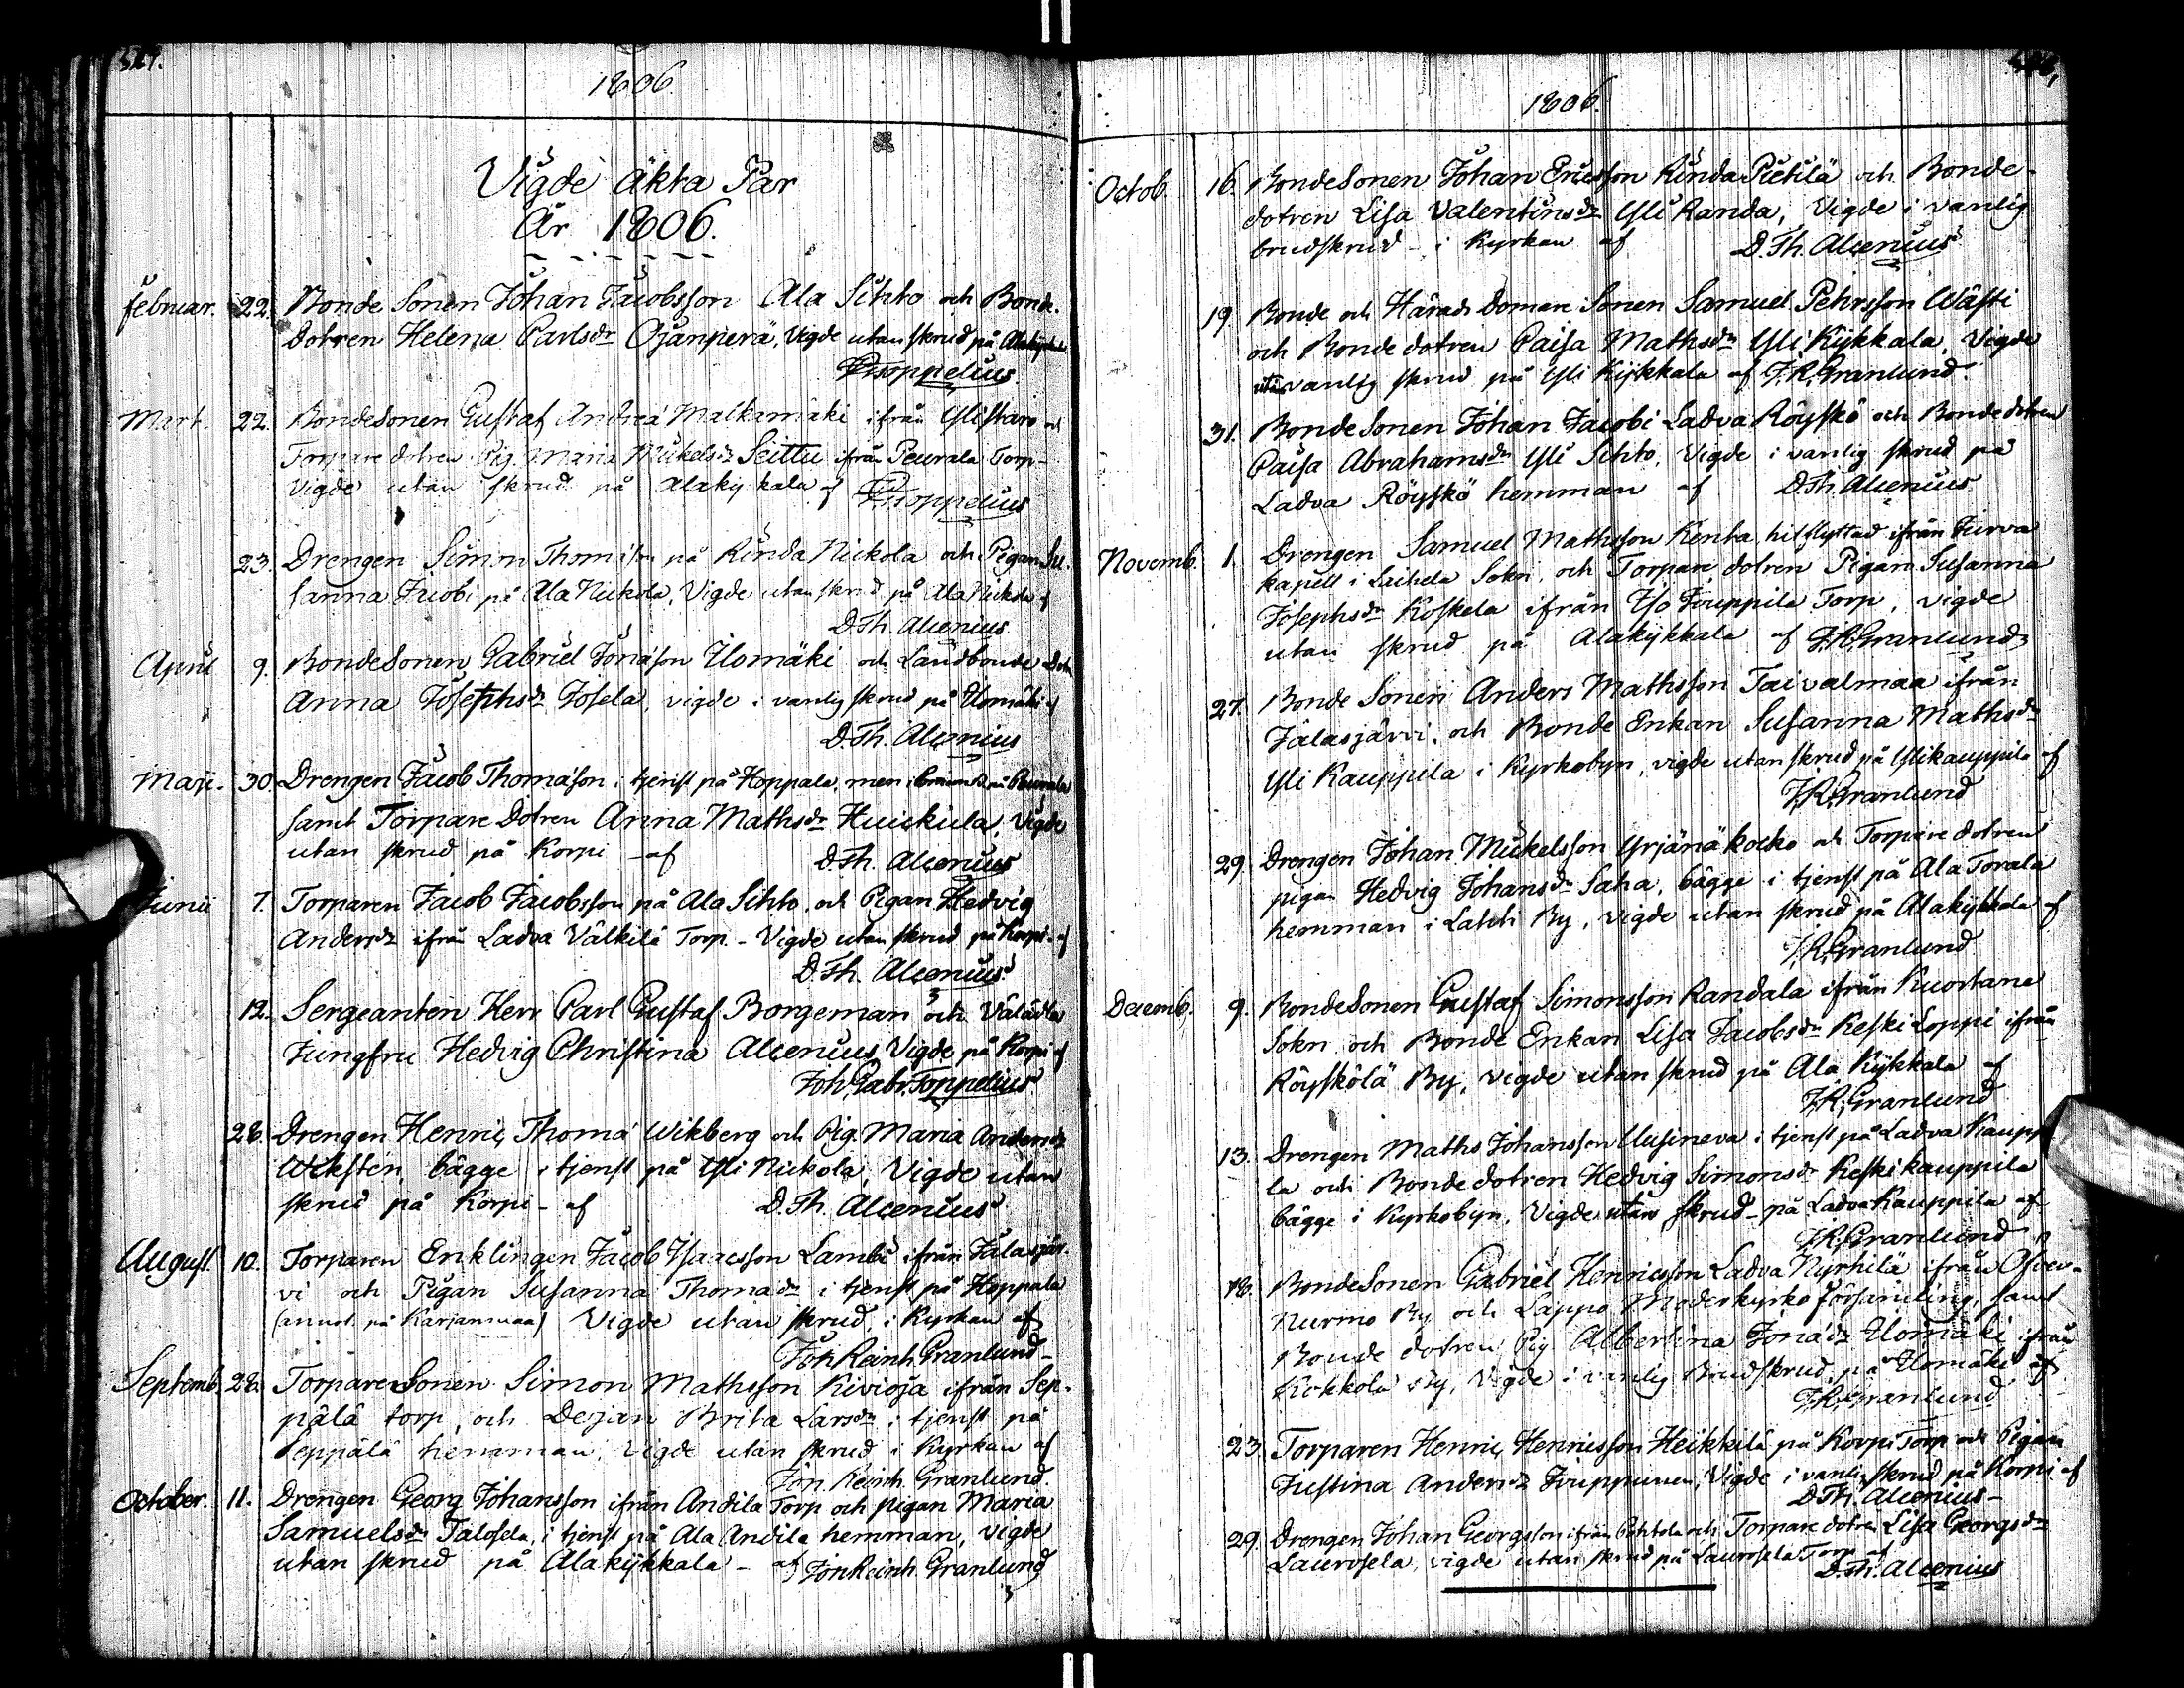 527.
1806.
Vigde äkta Par
År 1806.
Februar. 22. Bonde Sonen Johan Jacobsson Ala Sihto och Bonde-
Dotren Helena Carlsdr Ojanperä, Vigde utan skrud på Alakykkala
Toppelius
Mart. 22. BondeSonen Gustaf Andreæ Malkamäki ifrån Ylistaro och
Torpare dotren Pig. Maria Mickelsdr Seittu ifrån Peurala Torp-
Vigde utan skrud på Alakykkala af Toppelius
23. Drengen Simon Thomæson på Rinda Nickola och Pigan Su-
sanna Jacobi på Ala Nickola, Vigde utan skrud på Ala Nickola af
D. Th. Alcenius.
April 9. BondeSonen Gabriel Jonæson Ilomäki och Landbonde Dotr.
Anna Josephsdr Josela, vigde i vanlig skrud på Ilomäki af
D. Th. Alcenius
Maji. 30. Drengen Jacob Thomæson i tjenst på Hoppala, men på Peurala
samt Torpare Dotren Anna Mathsdr Huickula, Vigde
utan skrud på Korpi - af D. Th. Alcenius
Junii 7. Torparen Jacob Jacobsson på Ala Sihto, och Pigan Hedvig
Andersdr ifrån Ladva Välkilä Torp - Vigde utan skrud på Korpi - af
D. Th. Alcenius
12. Sergeanten Herr Carl Gustaf Borgeman och Välädla
Jungfru Hedvig Christina Alcenius, Vigde på Korpi af
Joh. Gabr. Toppelius
28. Drengen Henric Thomæ Wikberg och Pig. Maria Andersdr
Weksten, bägge i tjenst på Yli Nickola, Vigde utan
skrud på Korpi - af D. Th. Alcenius
August. 10. Torparen Enklingen Jacob Isaacsson Lambi ifrån Jalasjär-
vi och Pigan Susanna Thomædr i tjenst på Hoppala
(annot. på Karjanmaa) Vigde utan skrud i Kyrkan af
Joh Reinh. Granlund -
Septemb. 28. TorpareSonen Simon Mathsson Kivioja ifrån Sep-
pälä torp, och Dejan Brita Larsdr i tjenst på
Seppälä hemman, Vigde utan skrud i Kyrkan af
Joh Reinh. Granlund.
October. 11. Drengen Georg Johansson ifrån Andila Torp och pigan Maria
Samuelsdr Talosela, i tjenst på Ala Andila hemman, vigde
utan skrud på Alakykkala - af Joh Reinh. Granlund
1806.
Octob. 16. BondeSonen Johan Ericsson Rinda Pietilä och Bonde-
dotren Lisa Valentinsdr Yli Randa, Vigde i vanlig
brudskrud - i Kyrkan af D. Th. Alcenius
19. Bonde och Härads Domare Sonen Samuel Pehrsson Wästi
och Bonde dotren Caisa Mathsdr Yli Kykkala, Vigde
uti vanlig skrud på Yli Kykkala af J. R. Granlund
31. Bonde Sonen Johan Jacobi Ladva Röyskö och Bonde dotren
Caisa Abrahamsdr Yli Sihto, Vigde i vanlig skrud på
Ladva Röyskö hemman af D. Th. Alcenius
Novemb. 1. Drengen Samuel Mathsson Kenta, hitflyttad ifrån Jurva
kapell i Laihela Sokn, och Torpare dotren Pigan Susanna
Josephsdr Koskela ifrån Iso Jouppila Torp, vigde
utan skrud på Alakykkala af J. R. Granlund
27. Bonde Sonen Anders Mathsson Taivalmaa ifrån
Jalasjärvi, och Bonde Enkan Susanna Mathsdr
Yli Kauppila i Kyrkobyn, vigde utan skrud på Ylikauppila af
J. R. Granlund
29. Drengen Johan Mickelsson Yrjänäkocko och Torpare dotren
pigan Hedvig Johansdr Saha, bägge i tjenst på Ala Torala
hemman i Lahti By, vigde utan skrud på Alakykkala af
J. R. Granlund
Decemb. 9. BondeSonen Gustaf Simonsson Randala ifrån Kuortane
Sokn och Bonde Enkan Lisa Jacobsdr Keski Loppi ifrån
Röyskölä By, vigde utan skrud på Ala Kykkala af
J. R. Granlund
13. Drengen Maths Johansson Uusineva i tjenst på Ladva Kauppi-
la och Bonde dotren Hedvig Simonsdr Keskikauppila
bägge i Kyrkobyn, Vigde utan skrud - på Ladva Kauppila af
J. R. Granlund
18. BondeSonen Gabriel Henricsson Ladva Nyrhilä ifrån
Nurmo By och Lappo Moderkyrko församling, samt
Bonde dotren Pig. Albertina Jonædr Ilomäki ifrån
Kokkola By, Vigde i vanlig Brudskrud på Ilomäki af
J. R. Granlund
23. Torparen Henric Henricsson Heikkilä på Korpi Torp och Pigan
Justina Andersdr Jouppinen, Vigde i vanlig skrud på Korpi af
D. Th. Alcenius -
29. Drengen Johan Georgsson ifrån och Torpare dotren Lisa Georgsdr
Laurosela, vigde utan skrud på Laurosela Torp af
D. Th. Alcenius